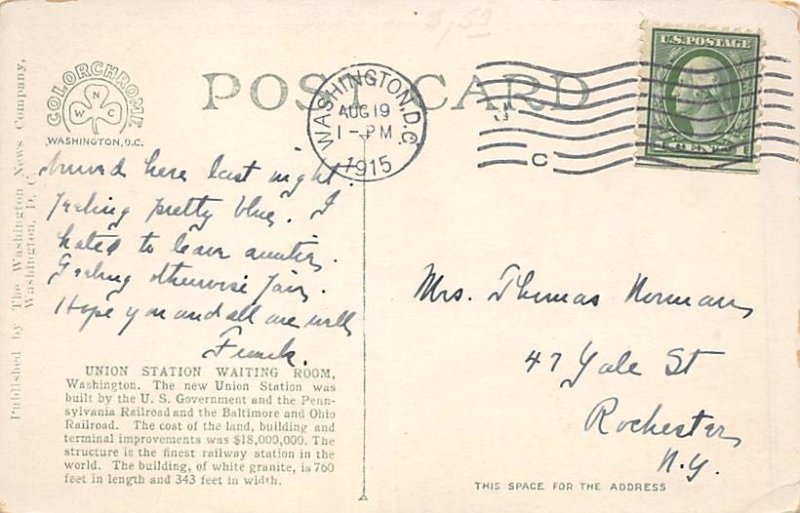 POST CARD
COLORCHROME
W N C
WASHINGTON, D.C.
Published by The Washington News Company,
Washington, D. C.
WASHINGTON, D.C.
AUG 19
1 - PM
1915
C
U.S. POSTAGE
here last night.
Feeling pretty blue. I
hated to leave
Feeling otherwise fair.
Hope you and all are well
Frank.
Mrs. Thomas Norman,
47 Yale St
Rochester,
N.Y.
UNION STATION WAITING ROOM,
Washington. The new Union Station was
built by the U. S. Government and the Penn-
sylvania Railroad and the Baltimore and Ohio
Railroad. The cost of the land, building and
terminal improvements was $18,000,000. The
structure is the finest railway station in the
world. The building, of white granite, is 760
feet in length and 343 feet in width.
THIS SPACE FOR THE ADDRESS